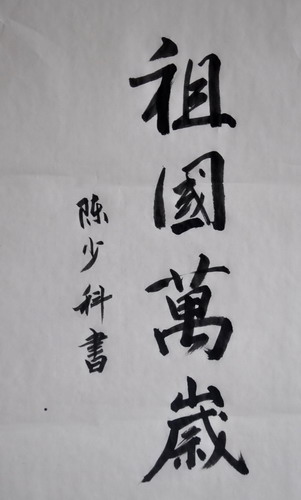 祖國萬歲
陈少科書